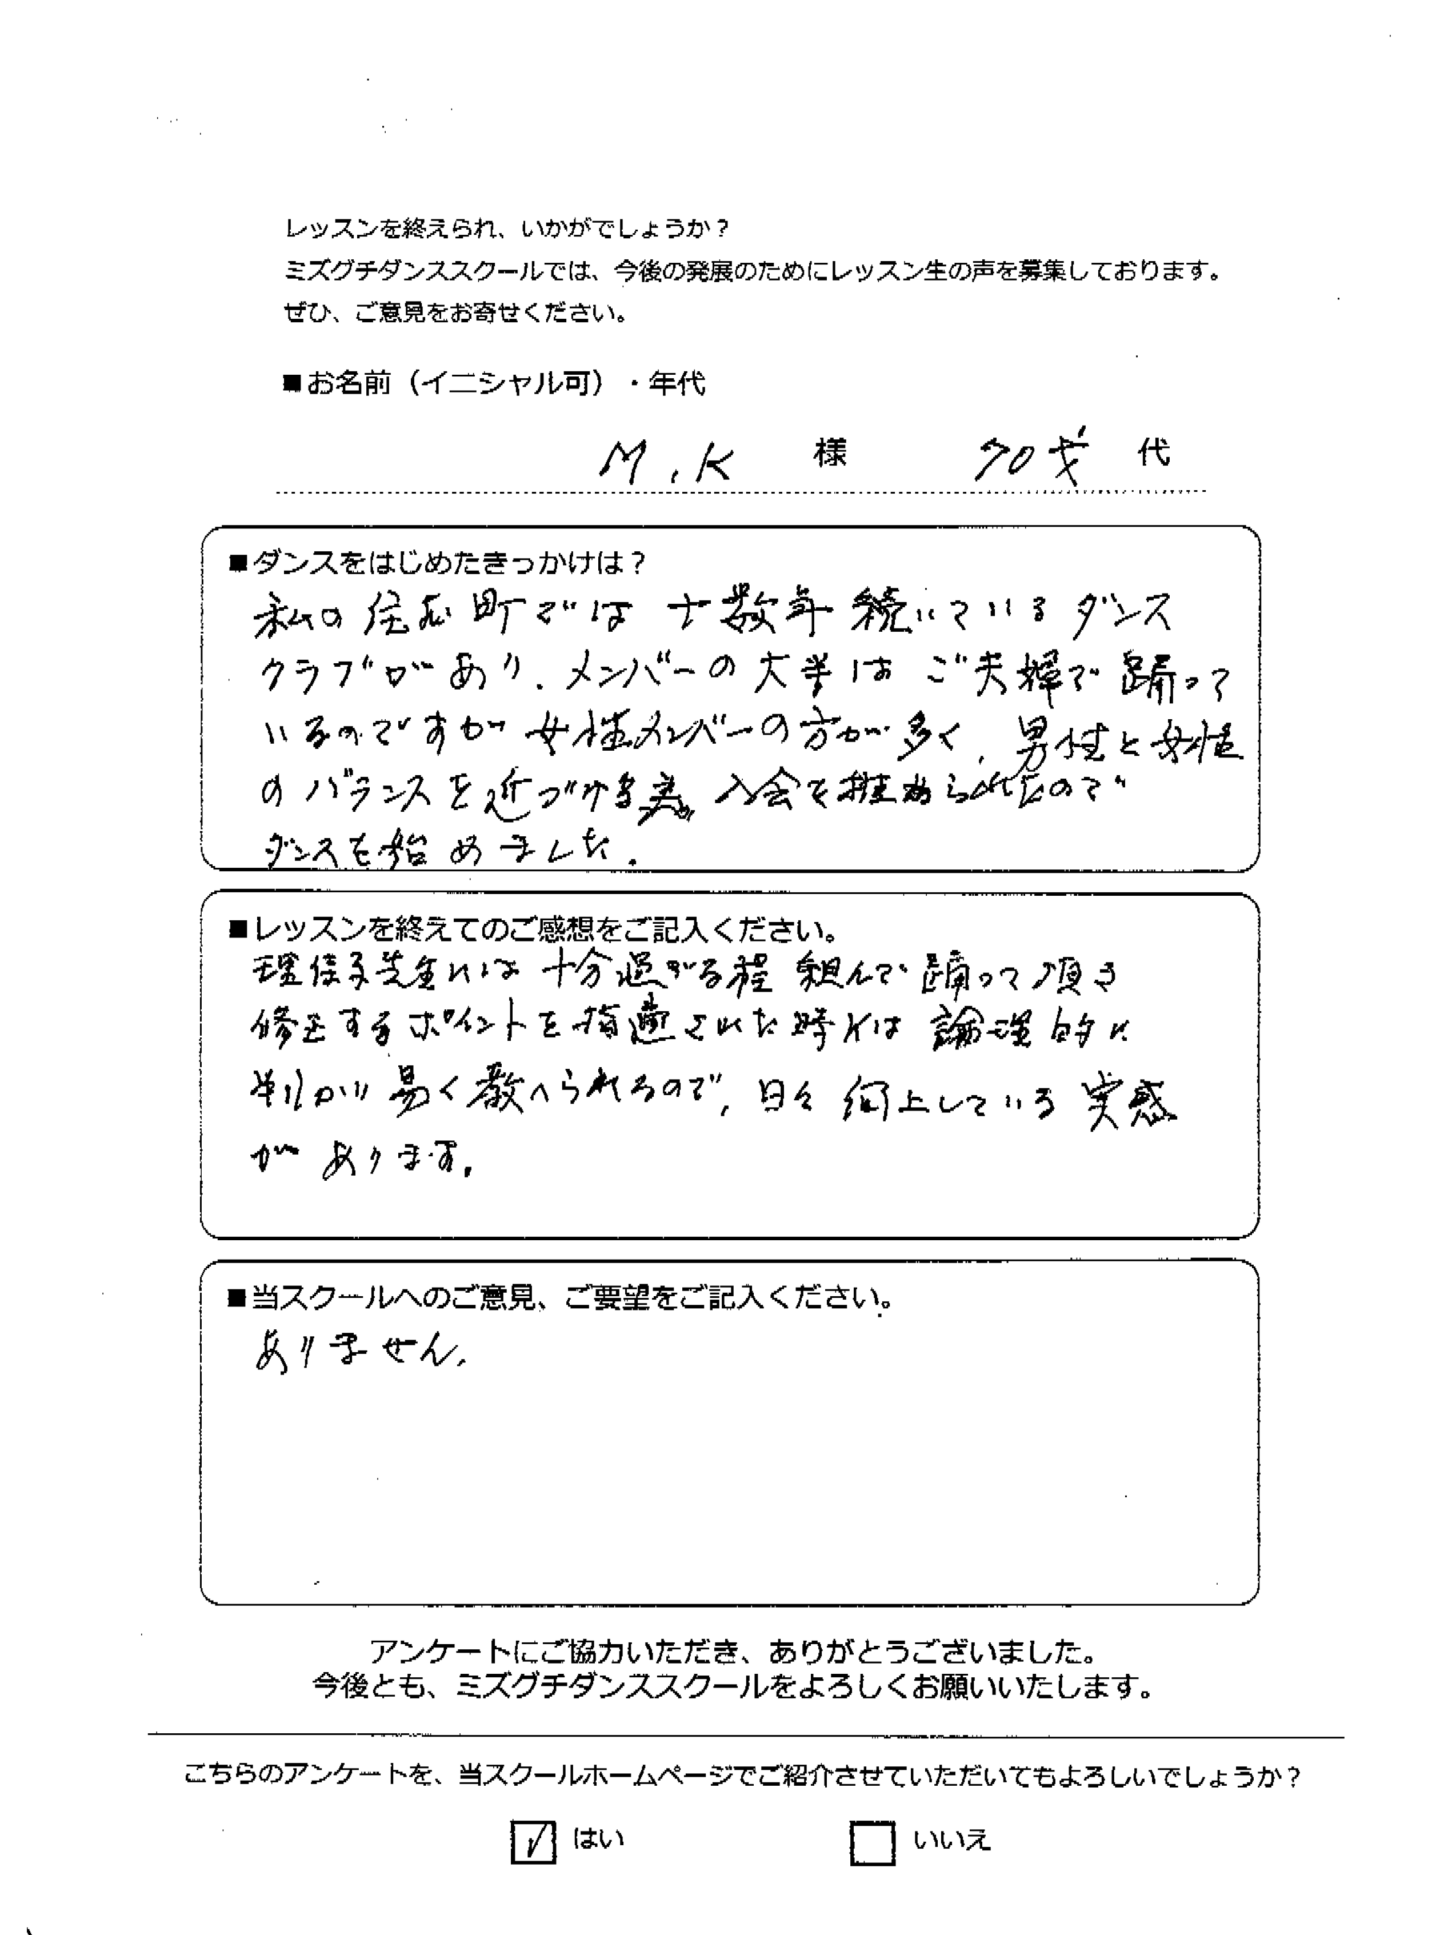 レッスンを終えられ、いかがでしょうか？
ミズグチダンススクールでは、今後の発展のためにレッスン生の声を募集しております。
ぜひ、ご意見をお寄せください。
■お名前（イニシャル可）・年代
M.K 様 70才 代
■ダンスをはじめたきっかけは？
私の住む町では十数年続いているダンス
クラブがあり、メンバーの大半はご夫婦で踊って
いるのですが女性メンバーの方が多く、男性と女性
のバランスを近づける為、入会を推められたので
ダンスを始めました。
■レッスンを終えてのご感想をご記入ください。
理佳子先生には十分過ぎる程組んで踊って頂き
修正するポイントを指適された時には論理的に
判かり易く教へられるので、日々向上している実感
があります。
■当スクールへのご意見、ご要望をご記入ください。
ありません。
アンケートにご協力いただき、ありがとうございました。
今後とも、ミズグチダンススクールをよろしくお願いいたします。
こちらのアンケートを、当スクールホームページでご紹介させていただいてもよろしいでしょうか？
はい いいえ